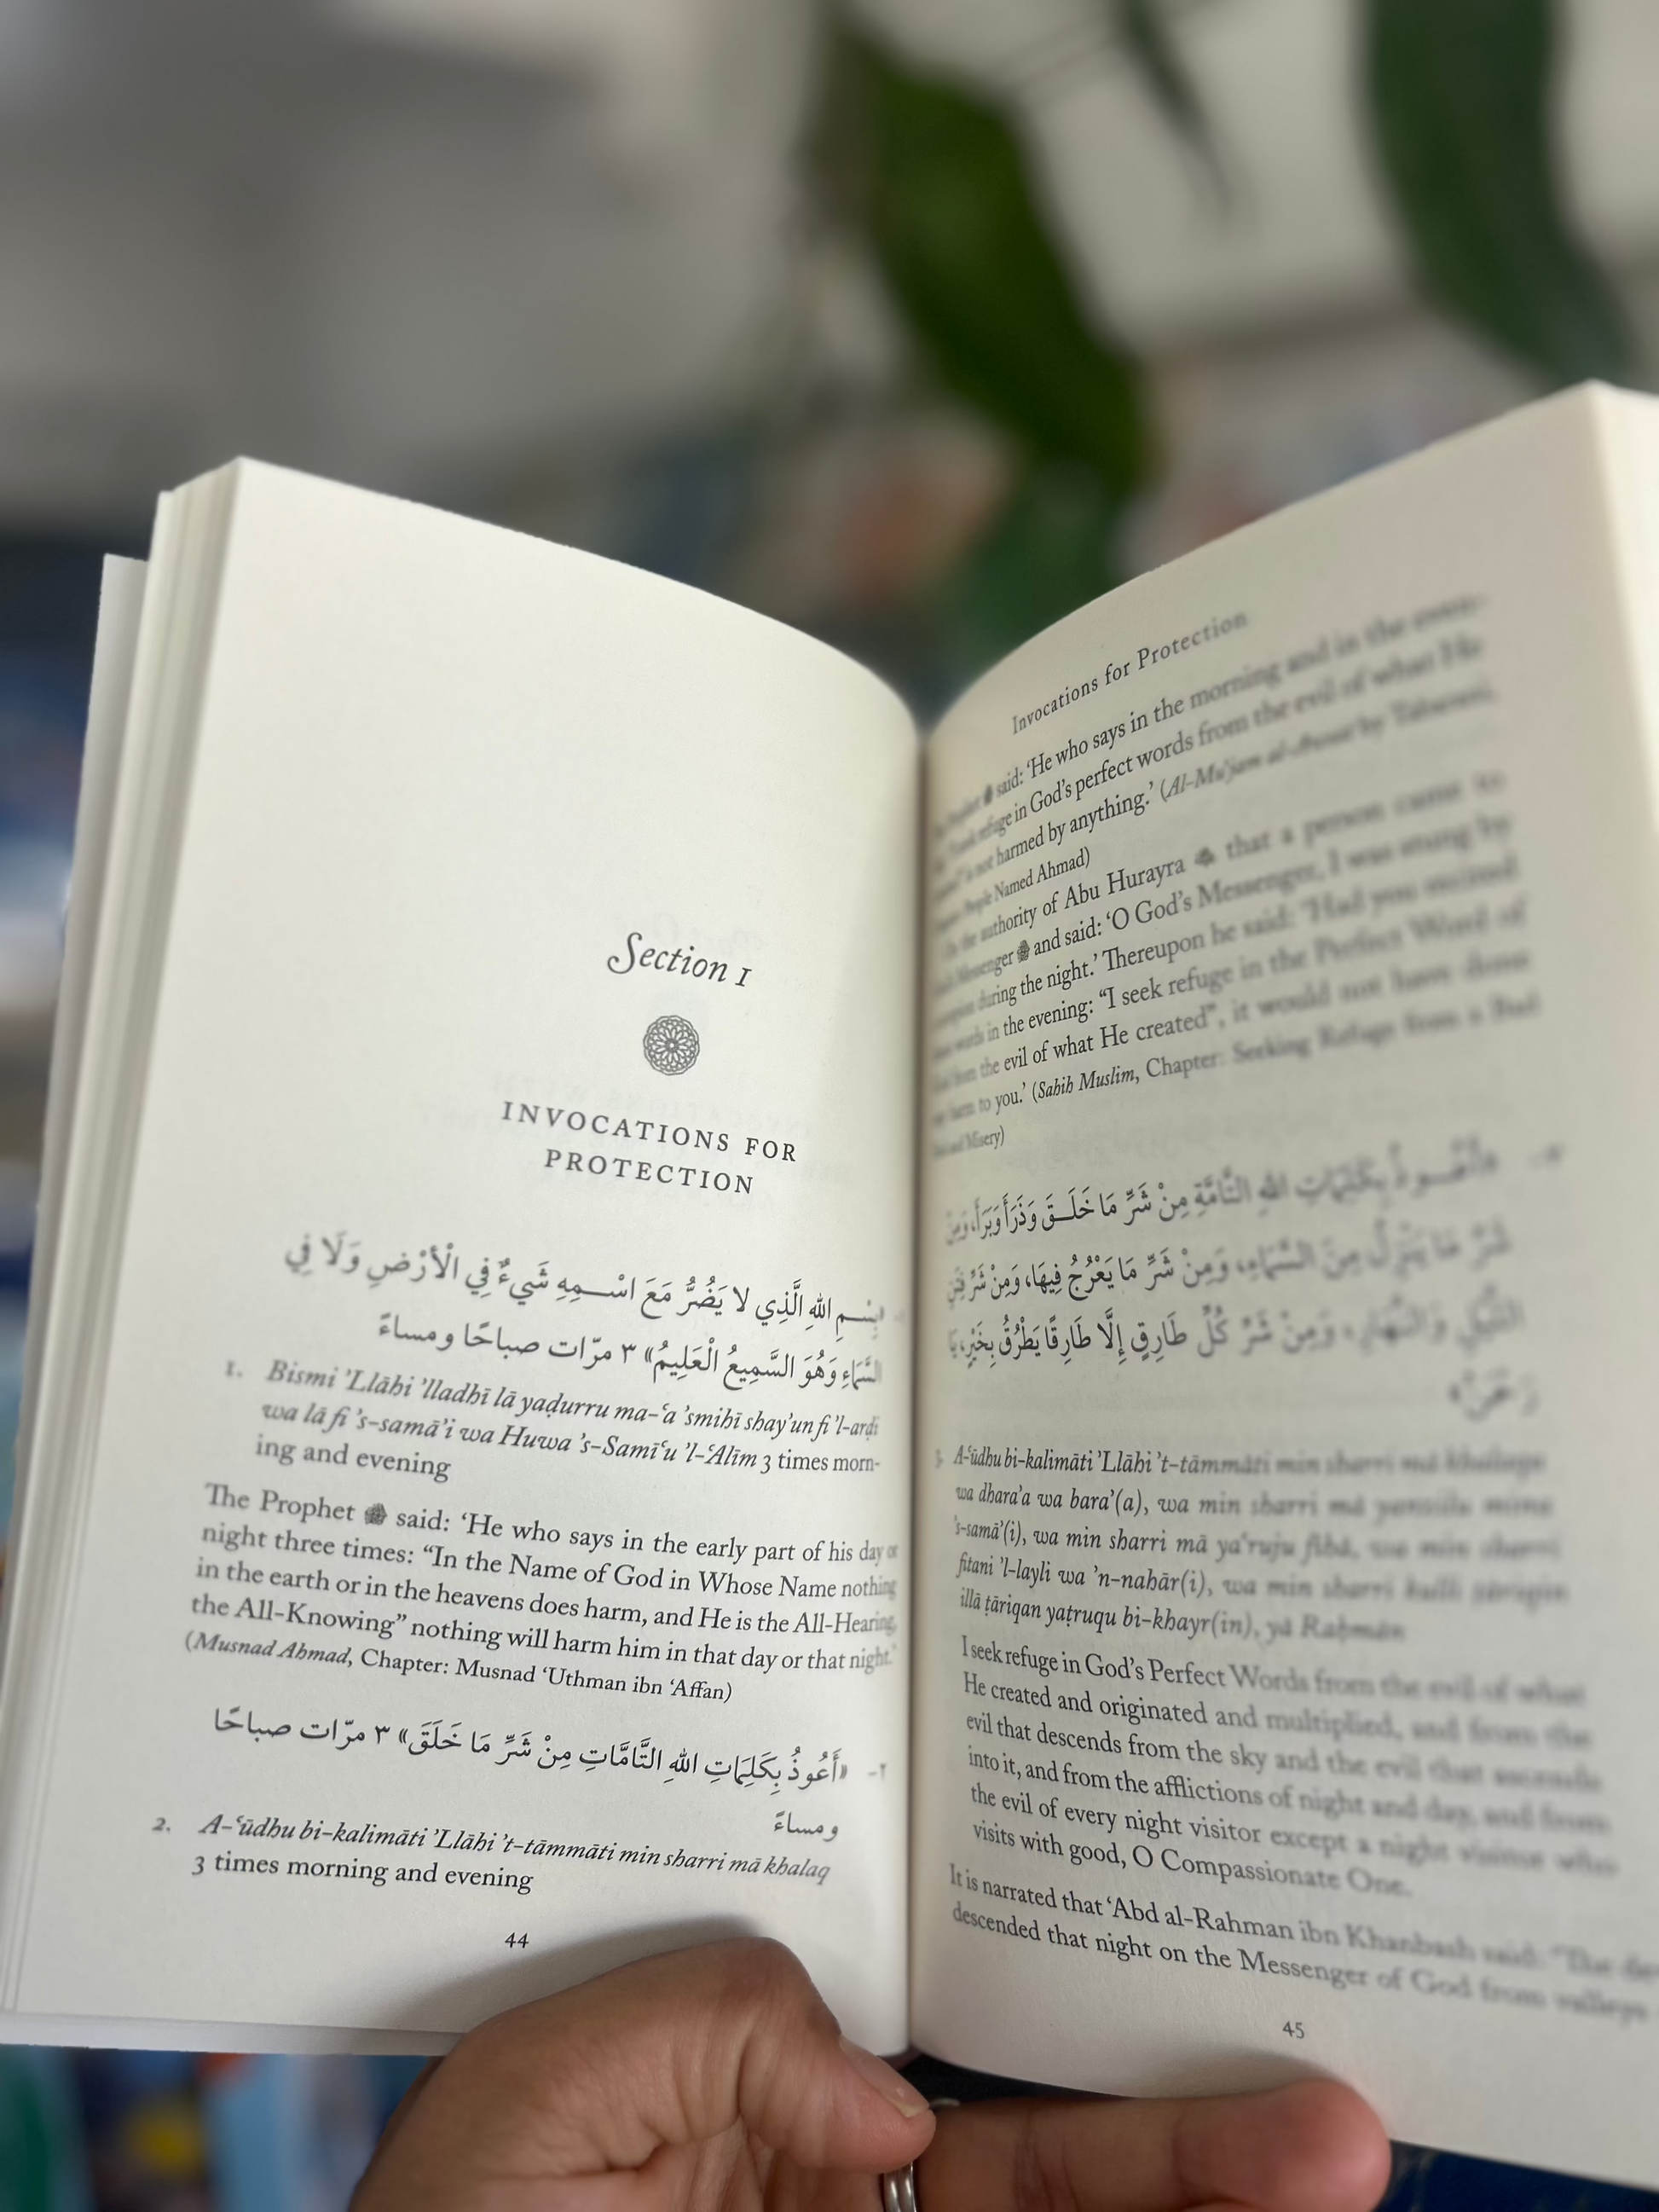 Section 1
INVOCATIONS FOR
PROTECTION
بِسْمِ اللهِ الَّذِي لا يَضُرُّ مَعَ اسْمِهِ شَيءٌ فِي الْأَرْضِ وَلَا فِي
السَّمَاءِ وَهُوَ السَّمِيعُ الْعَلِيمُ» ٣ مرّات صباحًا ومساءً
1. Bismi ’Llāhi ’lladhī lā yaḍurru ma-ʿa ’smihī shay’un fi ’l-arḍi
wa lā fi ’s-samā’i wa Huwa ’s-Samīʿu ’l-ʿAlīm 3 times morn-
ing and evening
The Prophet ﷺ said: ‘He who says in the early part of his day or
night three times: “In the Name of God in Whose Name nothing
in the earth or in the heavens does harm, and He is the All-Hearing,
the All-Knowing” nothing will harm him in that day or that night.’
(Musnad Ahmad, Chapter: Musnad ‘Uthman ibn ‘Affan)
٢- «أَعُوذُ بِكَلِمَاتِ اللهِ التَّامَّاتِ مِنْ شَرِّ مَا خَلَقَ» ٣ مرّات صباحًا
ومساءً
2. A-ʿūdhu bi-kalimāti ’Llāhi ’t-tāmmāti min sharri mā khalaq
3 times morning and evening
44
Invocations for Protection
said: ‘He who says in the morning and in the even-
refuge in God’s perfect words from the evil of what He
is not harmed by anything.’ (Al-Mu‘jam al-Awsat by Tabarani,
People Named Ahmad)
authority of Abu Hurayra that a person came to
Messenger ﷺ and said: ‘O God’s Messenger, I was stung by
during the night.’ Thereupon he said: ‘Had you recited
words in the evening: “I seek refuge in the Perfect Word of
from the evil of what He created”, it would not have done
harm to you.’ (Sahih Muslim, Chapter: Seeking Refuge from a Bad
and Misery)
«أَعُوذُ بِكَلِمَاتِ اللهِ التَّامَّةِ مِنْ شَرِّ مَا خَلَقَ وَذَرَأَ وَبَرَأَ، وَمِنْ
شَرِّ مَا يَنْزِلُ مِنَ السَّمَاءِ، وَمِنْ شَرِّ مَا يَعْرُجُ فِيهَا، وَمِنْ شَرِّ فِتَنِ
اللَّيْلِ وَالنَّهَارِ، وَمِنْ شَرِّ كُلِّ طَارِقٍ إِلَّا طَارِقًا يَطْرُقُ بِخَيْرٍ، يَا
رَحْمَنُ»
A-ʿūdhu bi-kalimāti ’Llāhi ’t-tāmmāti min sharri mā khalaqa
wa dhara’a wa bara’(a), wa min sharri mā yanzilu mina
’s-samā’(i), wa min sharri mā ya‘ruju fīhā, wa min sharri
fitani ’l-layli wa ’n-nahār(i), wa min sharri kulli ṭāriqin
illā ṭāriqan yaṭruqu bi-khayr(in), yā Raḥmān
I seek refuge in God’s Perfect Words from the evil of what
He created and originated and multiplied, and from the
evil that descends from the sky and the evil that ascends
into it, and from the afflictions of night and day, and from
the evil of every night visitor except a night visitor who
visits with good, O Compassionate One.
It is narrated that ‘Abd al-Rahman ibn Khanbash said: “The
descended that night on the Messenger of God from valleys
45